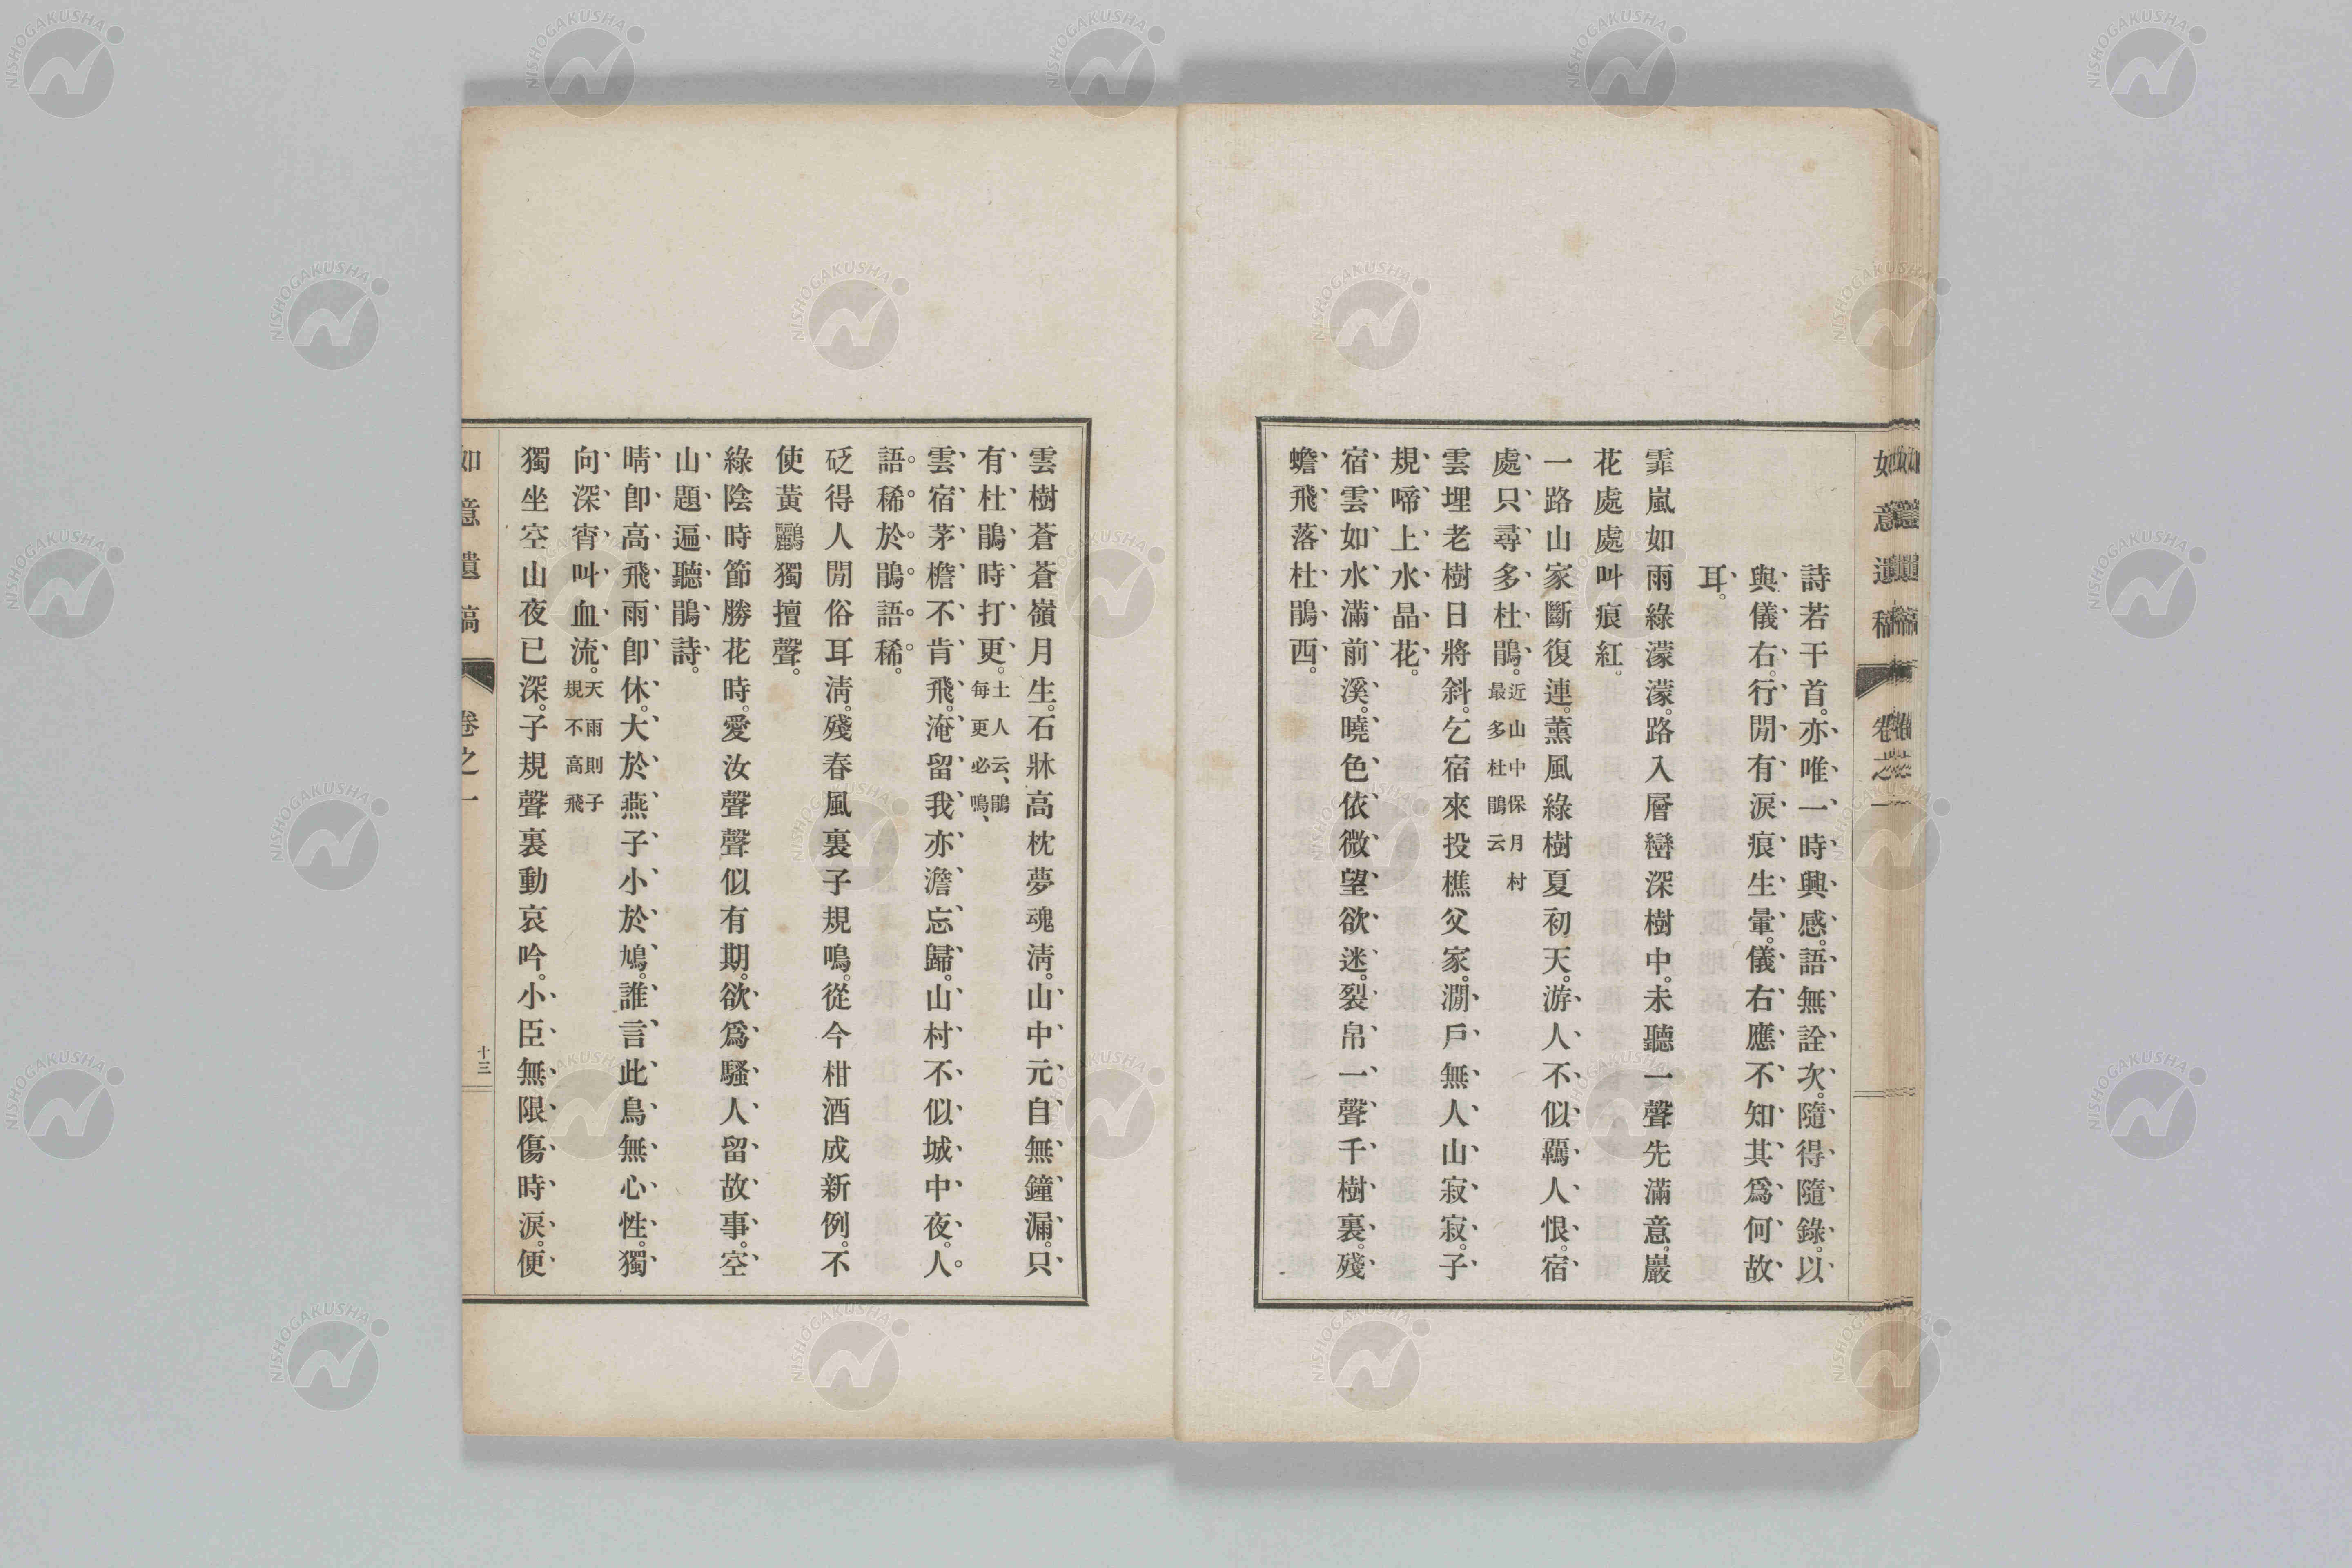 如意遺稿 卷之一
詩若干首。亦唯一時興感。語無詮次。隨得隨錄。以
與儀右。行閒有淚痕生暈。儀右應不知其爲何故
耳。
霏嵐如雨綠濛濛。路入層巒深樹中。未聽一聲先滿意。巖
花處處叫痕紅。
一路山家斷復連。薰風綠樹夏初天。游人不似羈人恨。宿
處只尋多杜鵑。近山中保月村
最多杜鵑云
雲埋老樹日將斜。乞宿來投樵父家。澗戶無人山寂寂。子
規啼上水晶花。
宿雲如水滿前溪。曉色依微望欲迷。裂帛一聲千樹裏。殘
蟾飛落杜鵑西。
雲樹蒼蒼嶺月生。石牀高枕夢魂淸。山中元自無鐘漏。只
有杜鵑時打更。土人云、鵑
每更必鳴、
雲宿茅檐不肯飛。淹留我亦澹忘歸。山村不似城中夜。人
語稀於鵑語稀。
砭得人閒俗耳淸。殘春風裏子規鳴。從今柑酒成新例。不
使黃鸝獨擅聲。
綠陰時節勝花時。愛汝聲聲似有期。欲爲騷人留故事。空
山題遍聽鵑詩。
晴卽高飛雨卽休。大於燕子小於鳩。誰言此鳥無心性。獨
向深宵叫血流。天雨則子
規不高飛
獨坐空山夜已深。子規聲裏動哀吟。小臣無限傷時淚。便
如意遺稿 卷之一 十三
NISHOGAKUSHA